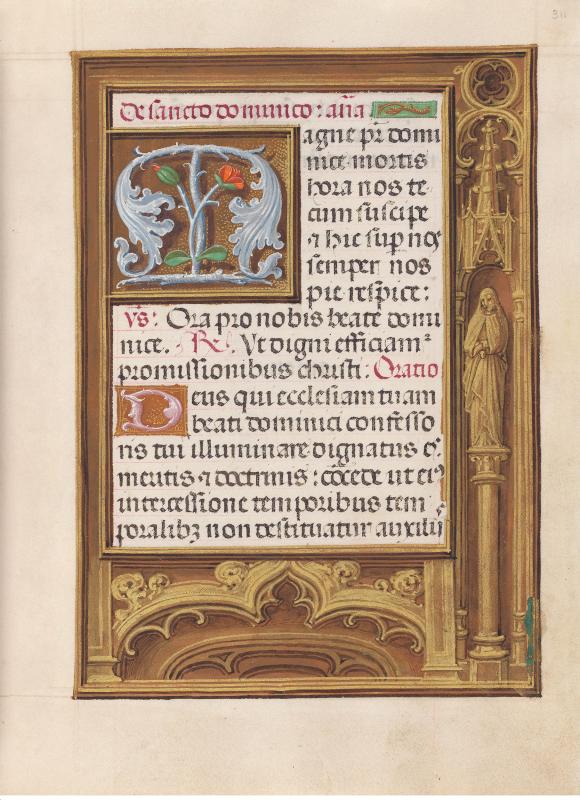 311
De sancto dominico: aña
Magne pr̄ domi
nice mortis
hora nos te
cum suscipe
⁊ hic sup nos
semper nos
pie respice:
vs: Ora pro nobis beate domi
nice. R. Vt digni efficiam²
promissionibus christi: Oratio
Deus qui ecclesiam tuam
beati dominici confesso
ris tui illuminare dignatus es
meritis ⁊ doctrinis: cōcede ut ei⁹
intercessione temporibus tem
poralibꝫ non destituatur auxilijs